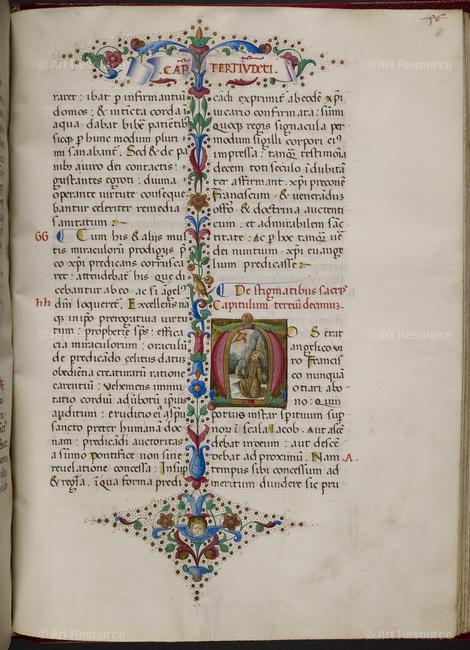 © Art Resource
© Art Resource
56
CAP TERTIVDCI.
raret: ibat p infirmantiū
domos: & intīcta corda ī
aqua dabat bibē patientib
sicq p hunc modum pluri
mi sanabant. Sed & de pa
nib auiro dei contactis:
gustantes egroti: diuina
operante uirtute conseque
bantur celeriter remedia
sanitatum:
GG
Cum his & alijs mul
tis miraculorū prodigijs p
co xpi preconis corrusca
ret: attendebat his que di
cebantur ab eo: ac si āgels
hh
dn̄i loqueretᷣ. Excellens ni
qs inipo prerogatiua uirtu
tum: prophetię sps: effica
cia miraculorum: oraculū
de predicādo celitus datū
obediētia creaturarū ratione
carentiū: uehemens immu
tatio cordiū adūborū ipius
auditum: eruditio ei aspū
sancto preter humanā doc
nam: predicādi auctoritas
a sūmo pontifice non sine
reuelatione concessa: Insup
& regla. īqua forma predi
cādi exprimitᷣ abeodē xpi
uicario confirmata: sūmi
quoqs regis signacula per
modum sigilli corpori eiᷤ
impressa: tanqᷤ testimōia
decem toti seculo īdubitā
ter affirmant. xpi preconē
Franciscum & uenerādum
offō & doctrina auctenti
cum. et admirabilem sāc
titate: ac p hoc tanqᷤ ue
dei nuntium. xpi euange
lium predicasse:
De stigmatibus sacris
Capitulum tertiū decimuᷤ.
O S erat
angelico ui
ro Francis
co nunquā
otiari abo
no: Quin
potius instar spirituum sup
noꝝ ī scala Iacob. Aut ascē
debat indeum: aut descē
debat ad proximū. Nam
A.
tempus sibi concessum ad
meritum diuidere sic pru
© Art Resource
© Art Resource